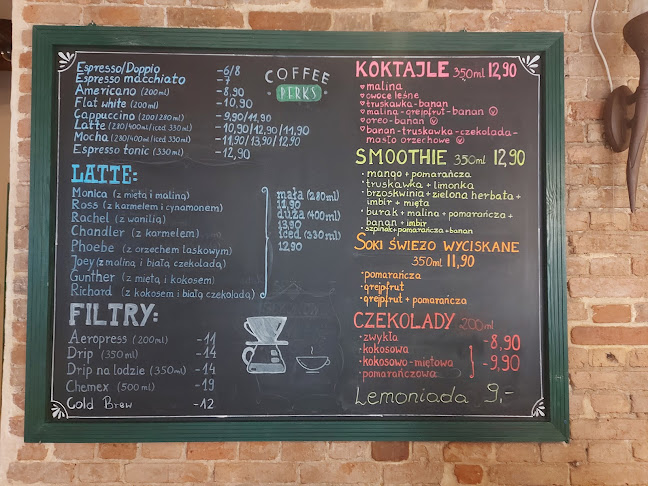 Espresso/Doppio -6/8
Espresso macchiato -7
Americano (200ml) -8,90
Flat white (200ml) -10,90
Cappuccino (200/280ml) -9,90/11,90
Latte (280/400ml/iced 330ml) -10,90/12,90/11,90
Mocha (280/400ml/iced 330ml) -11,90/13,90/12,90
Espresso tonic (330ml) -12,90
COFFEE
PERKS
LATTE:
Monica (z miętą i maliną)
Ross (z karmelem i cynamonem)
Rachel (z wanilią)
Chandler (z karmelem)
Phoebe (z orzechem laskowym)
Joey (z maliną i białą czekoladą)
Gunther (z miętą i kokosem)
Richard (z kokosem i białą czekoladą)
mała (280ml)
11,90
duża (400ml)
13,90
iced (330ml)
12,90
FILTRY:
Aeropress (200ml) -11
Drip (350ml) -14
Drip na lodzie (350ml) -14
Chemex (500ml) -19
Cold Brew -12
KOKTAJLE 350ml 12,90
malina
owoce leśne
truskawka-banan
malina-grejpfrut-banan
oreo-banan
banan-truskawka-czekolada-
masło orzechowe
SMOOTHIE 350ml 12,90
• mango + pomarańcza
• truskawka + limonka
• brzoskwinia + zielona herbata +
imbir + mięta
• burak + malina + pomarańcza +
banan + imbir
• szpinak + pomarańcza + banan
SOKI ŚWIEŻO WYCISKANE
350ml 11,90
• pomarańcza
• grejpfrut
• grejpfrut + pomarańcza
CZEKOLADY 200ml
• zwykła -8,90
• kokosowa
• kokosowo-miętowa -9,90
• pomarańczowa
Lemoniada 9,-